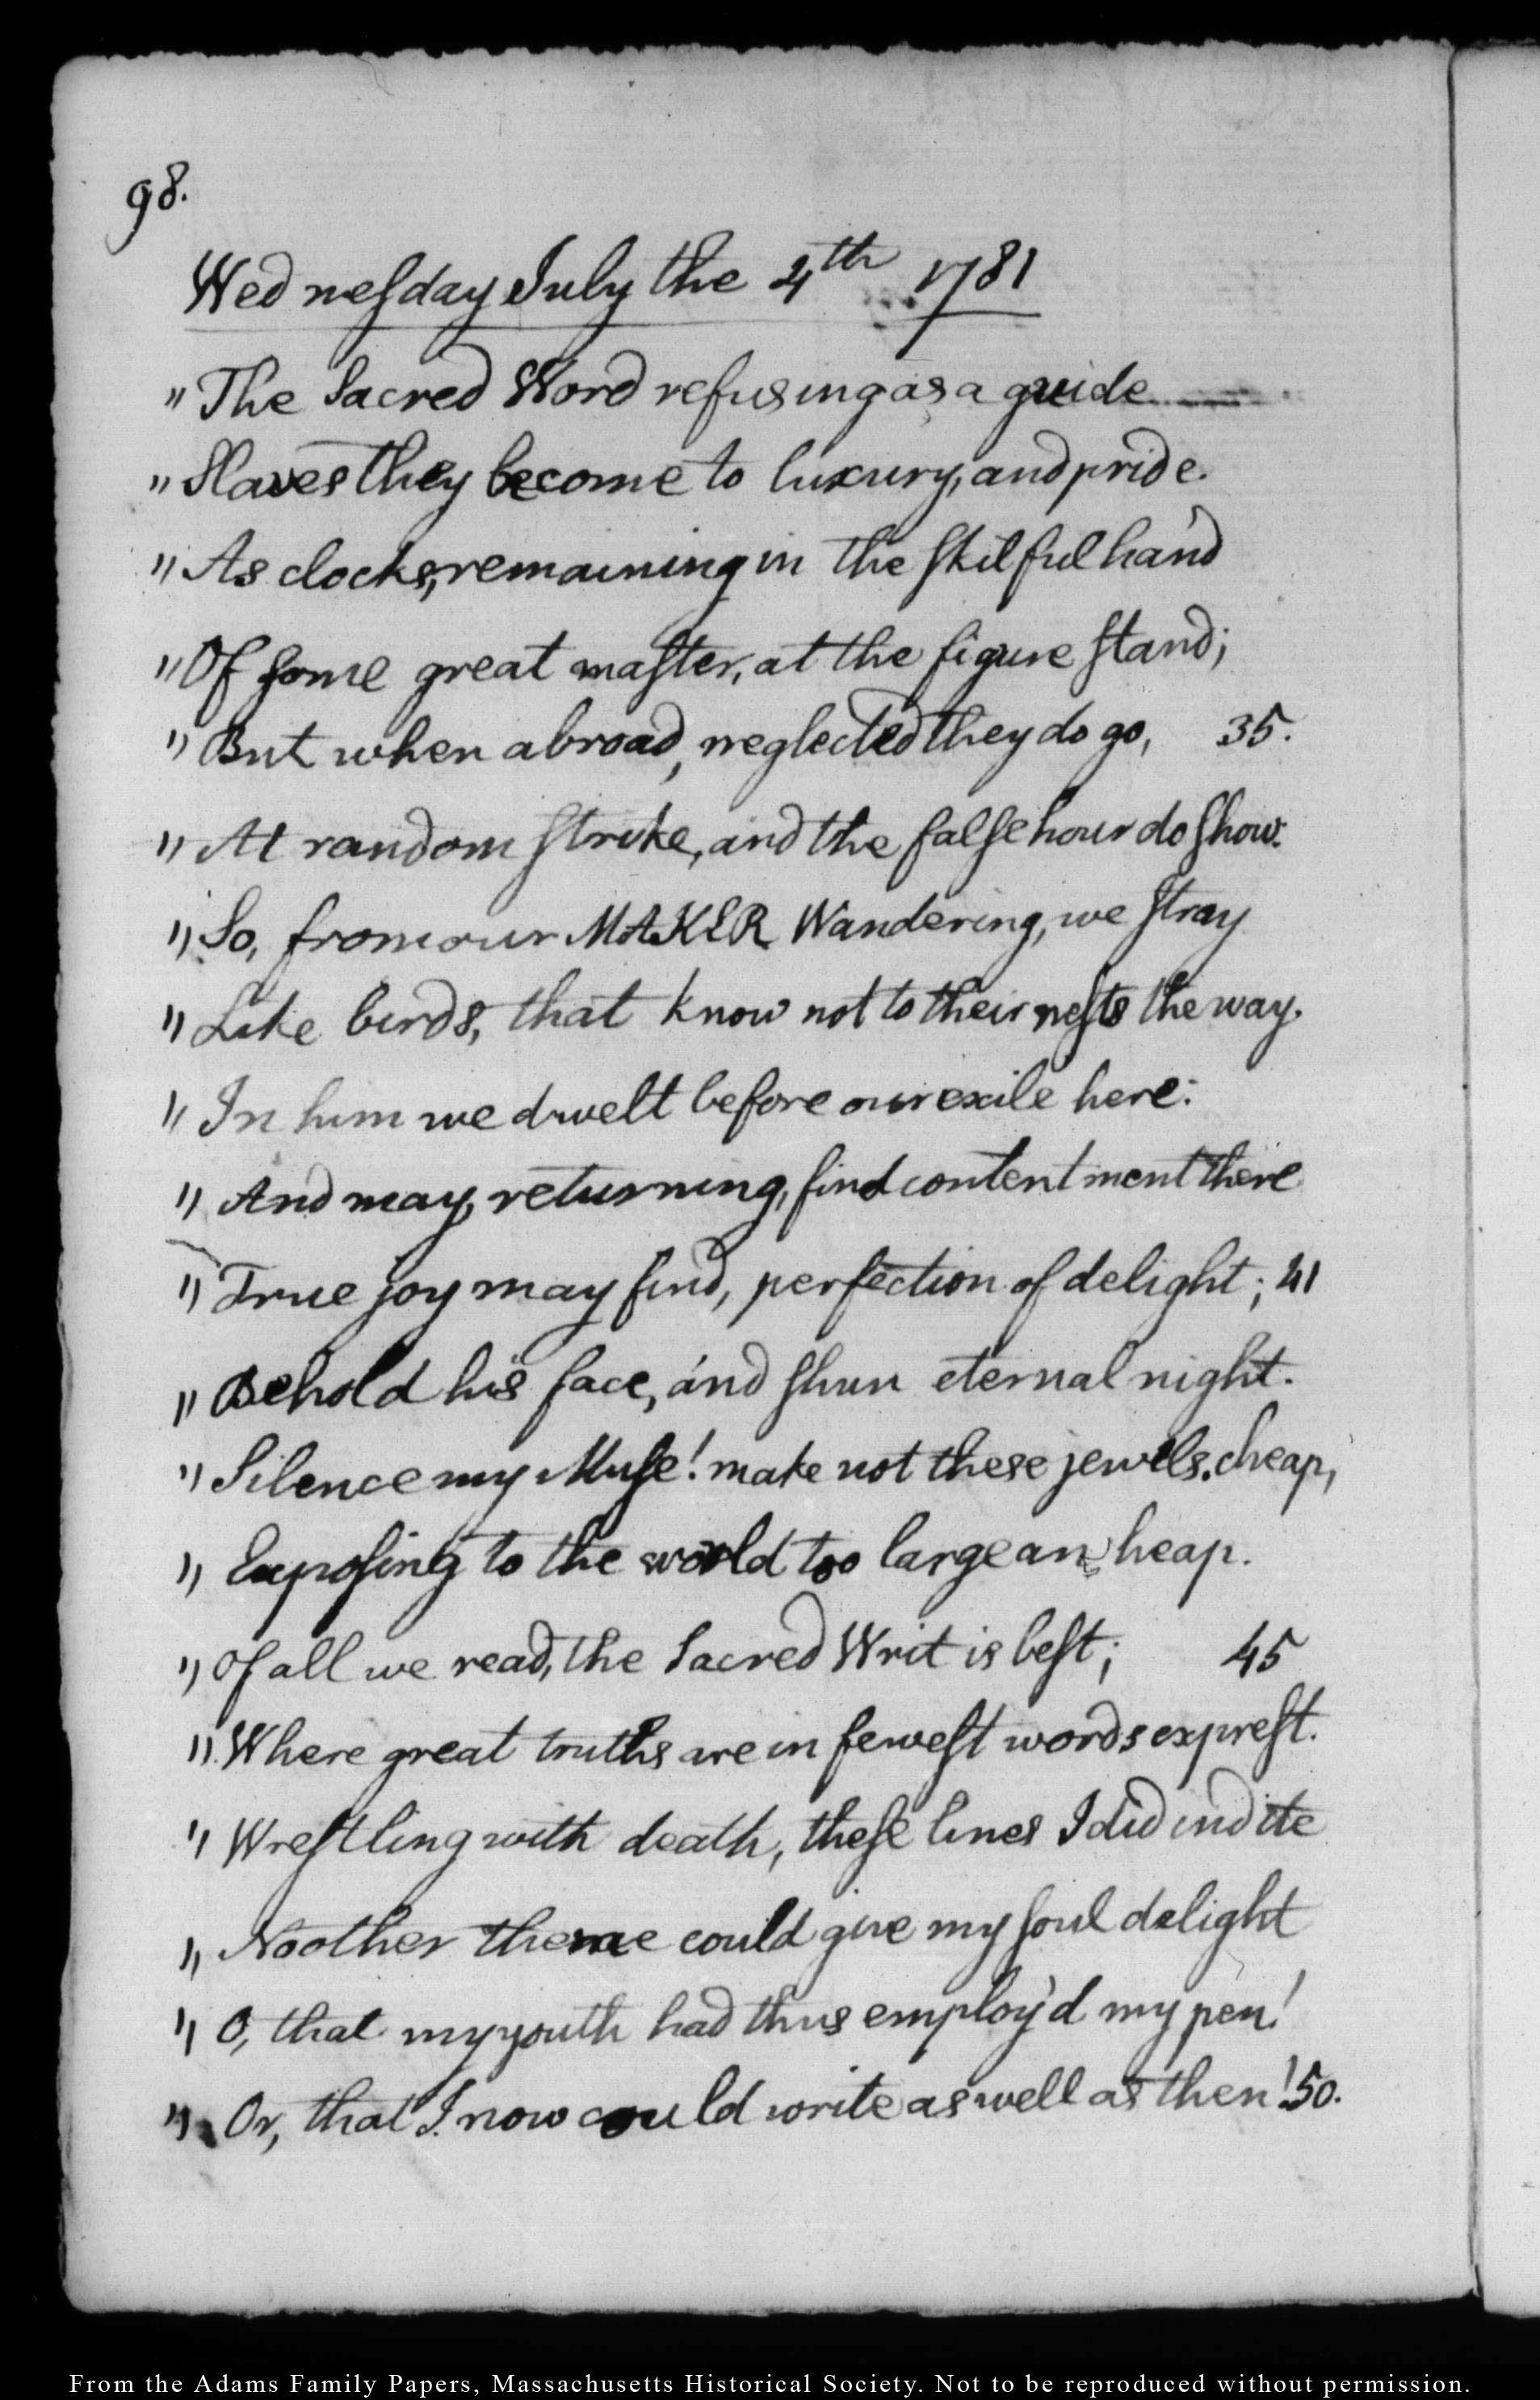 98.
Wednesday July the 4th 1781
" The Sacred Word refusing as a guide
" Slaves they become to luxury, and pride.
" As clocks, remaining in the skilful hand
" Of some great master, at the figure stand;
" But when abroad, neglected they do go, 35.
" At random strike, and the false hour do show:
" So, from our MAKER Wandering, we stray
" Like birds, that know not to their nests the way.
" In him we dwelt before our exile here:
" And may, returning, find contentment there
" True joy may find, perfection of delight; 41
" Behold his face, and shun eternal night.
" Silence my Muse! make not these jewels, cheap,
" Exposing to the world too large an heap.
" Of all we read, the Sacred Writ is best; 45
" Where great truths are in fewest words exprest.
" Wrestling with death, these lines I did indite
" No other theme could give my soul delight
" O, that my youth had thus employ'd my pen!
" Or, that I now could write as well as then! 50.
From the Adams Family Papers, Massachusetts Historical Society. Not to be reproduced without permission.